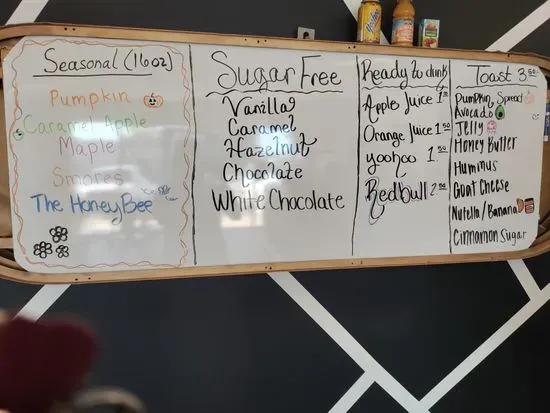 Seasonal (16oz)
Pumpkin
Caramel Apple
Maple
Smores
The HoneyBee
Sugar Free
Vanilla
Caramel
Hazelnut
Chocolate
White Chocolate
Ready to drink
Apple Juice 1.50
Orange Juice 1.50
yoohoo 1.50
Redbull 2.50
Toast 3.50
Pumpkin Spread
Avocado
Jelly
Honey Butter
Hummus
Goat Cheese
Nutella/Banana
Cinnamon Sugar